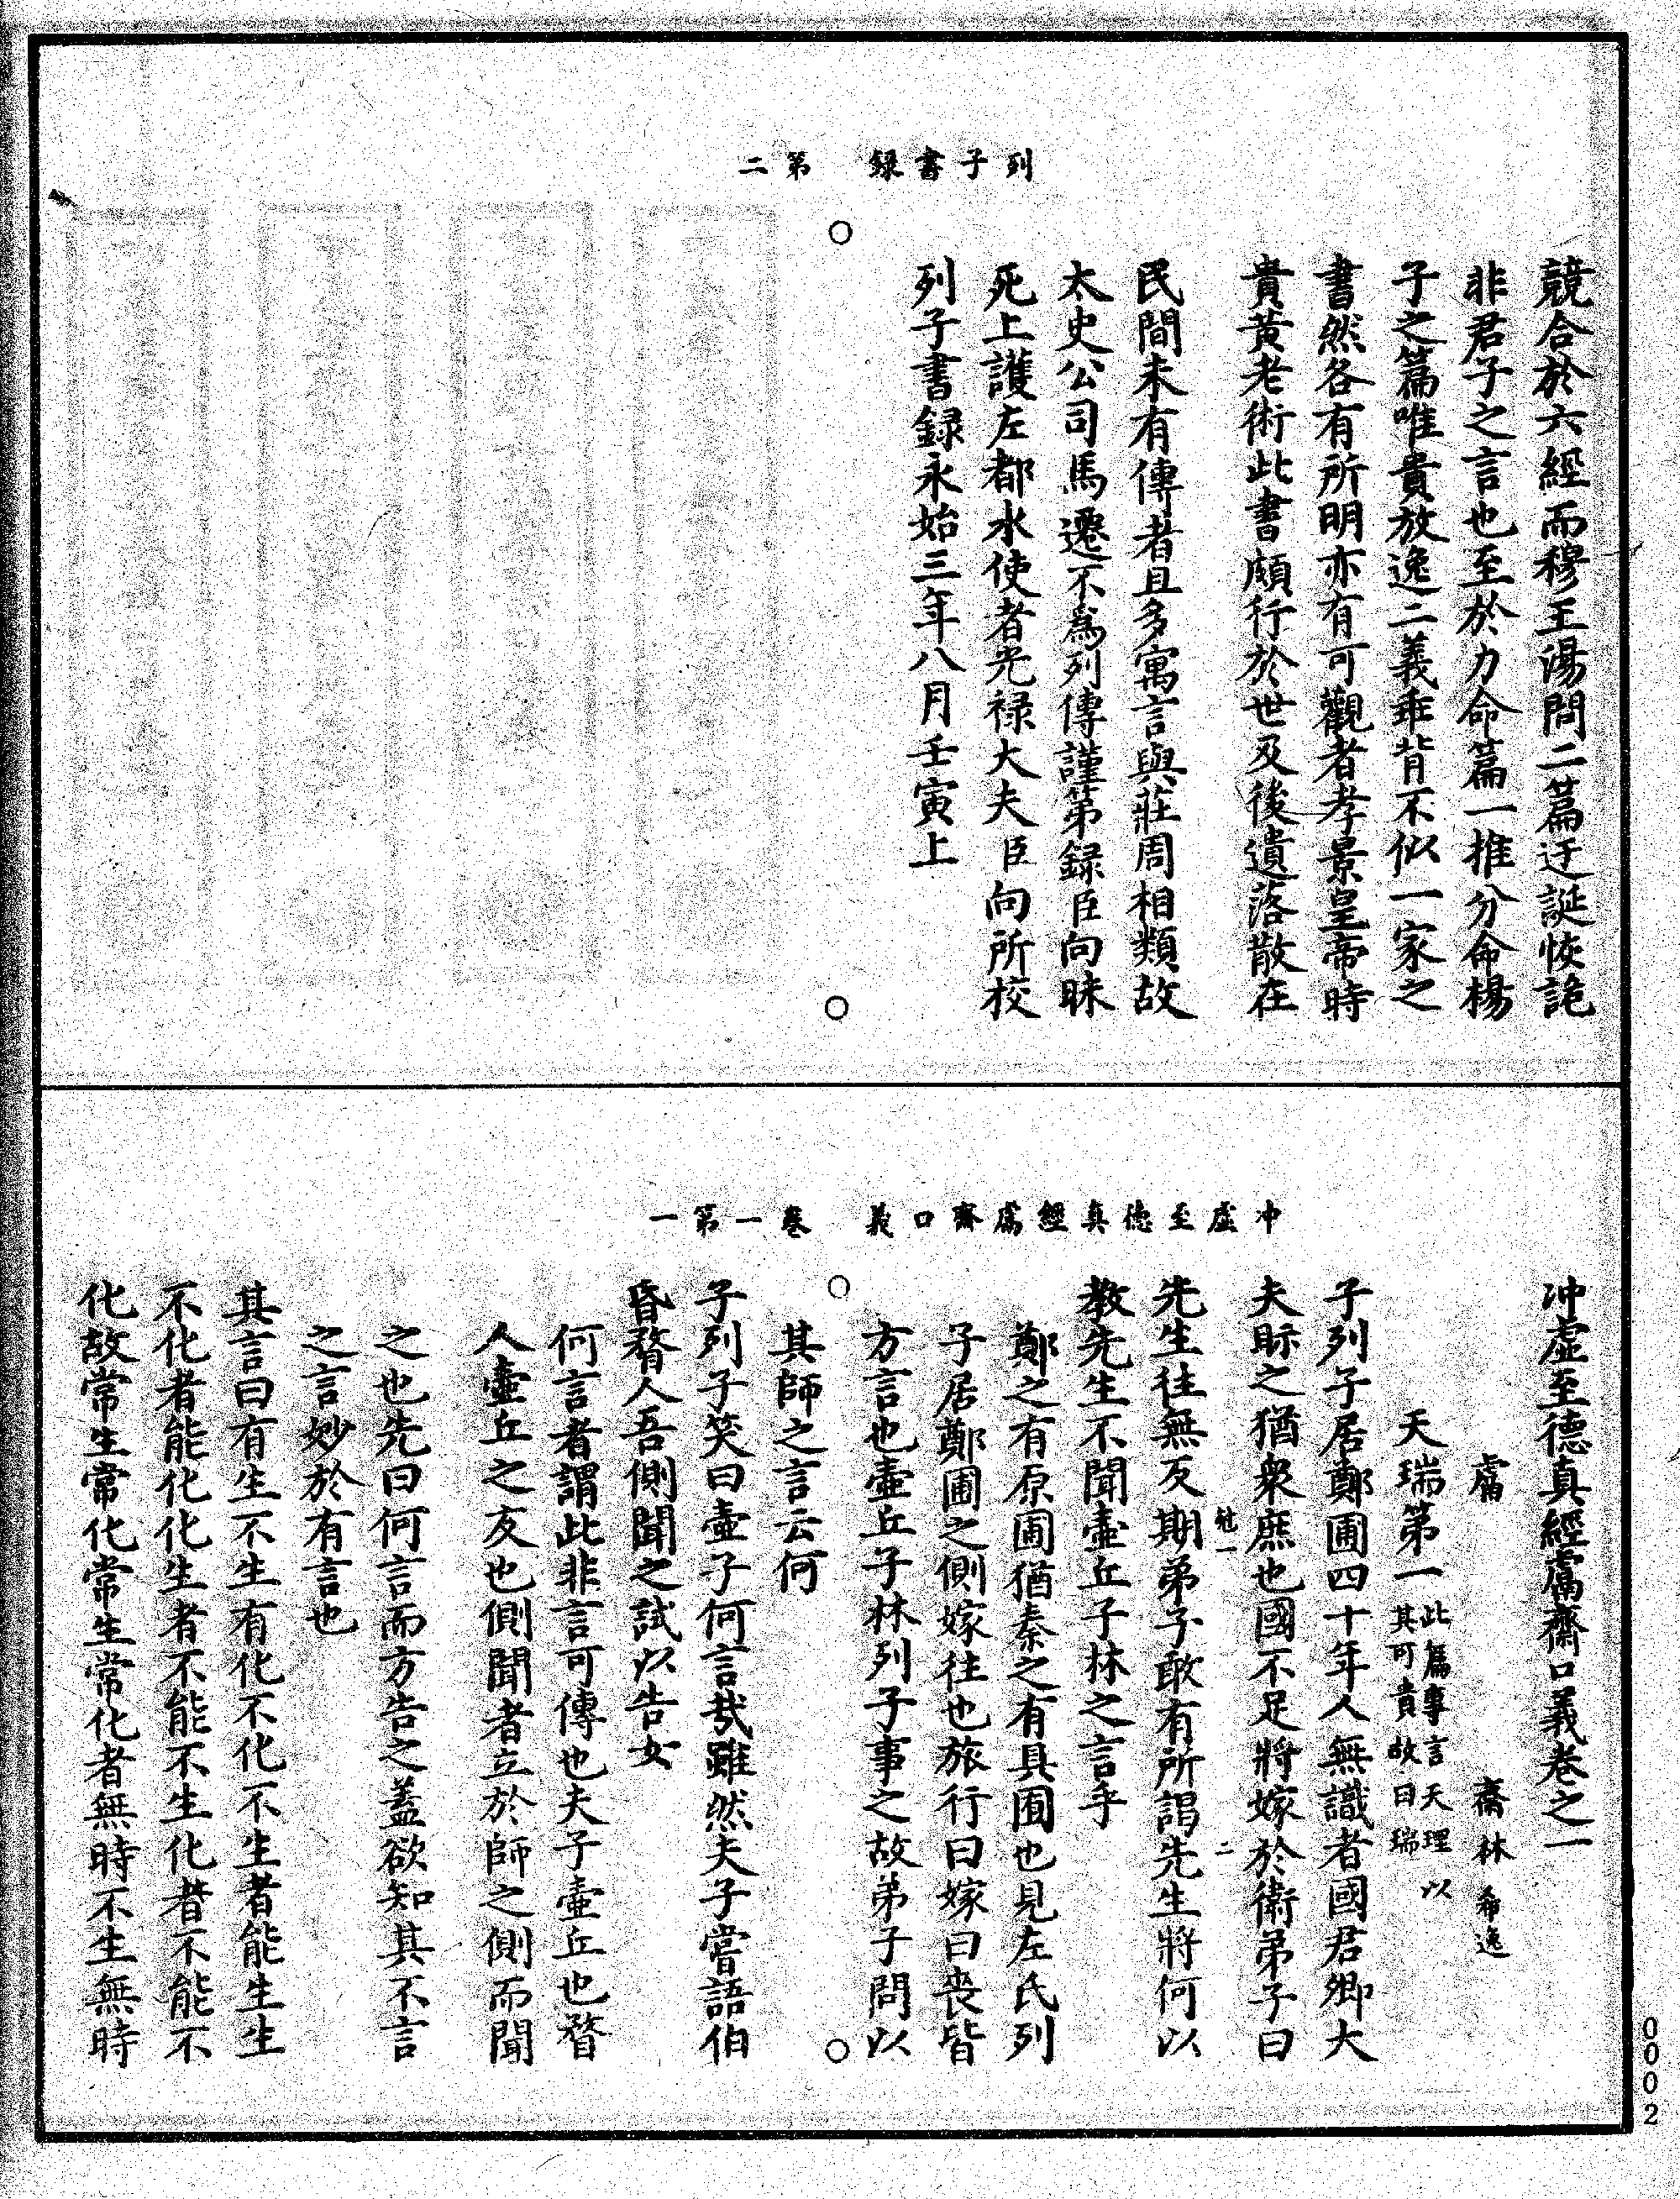 列子書録　第二
競合於六經而穆王湯問二篇迂誕恢詭
非君子之言也至於力命篇一推分命楊
子之篇唯貴放逸二義乖背不似一家之
書然各有所明亦有可觀者孝景皇帝時
貴黃老術此書頗行於世及後遺落散在
民間未有傳者且多寓言與莊周相類故
太史公司馬遷不爲列傳謹第録臣向昧
死上護左都水使者光禄大夫臣向所校
列子書録永始三年八月壬寅上
冲虛至德真經鬳齋口義　卷一第一
冲虛至德真經鬳齋口義卷之一
鬳齋林希逸
天瑞第一此篇專言天理以其可貴故曰瑞
子列子居鄭圃四十年人無識者國君卿大
夫眎之猶衆庶也國不足將嫁於衛弟子曰
尅一　二
先生往無反期弟子敢有所謁先生將何以
教先生不聞壷丘子林之言乎
鄭之有原圃猶秦之有具囿也見左氏列
子居鄭圃之側嫁往也旅行曰嫁曰喪皆
方言也壷丘子林列子事之故弟子問以
其師之言云何
子列子笑曰壷子何言哉雖然夫子嘗語伯
昏瞀人吾側聞之試以告女
何言者謂此非言可傳也夫子壷丘也瞀
人壷丘之友也側聞者立於師之側而聞
之也先曰何言而方告之蓋欲知其不言
之言妙於有言也
其言曰有生不生有化不化不生者能生生
不化者能化化生者不能不生化者不能不
化故常生常化常生常化者無時不生無時
0002